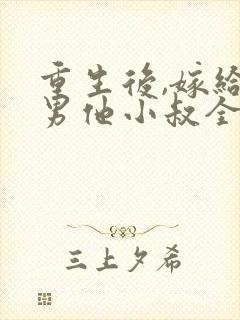 重生後,嫁給
男他小叔全
三上夕希